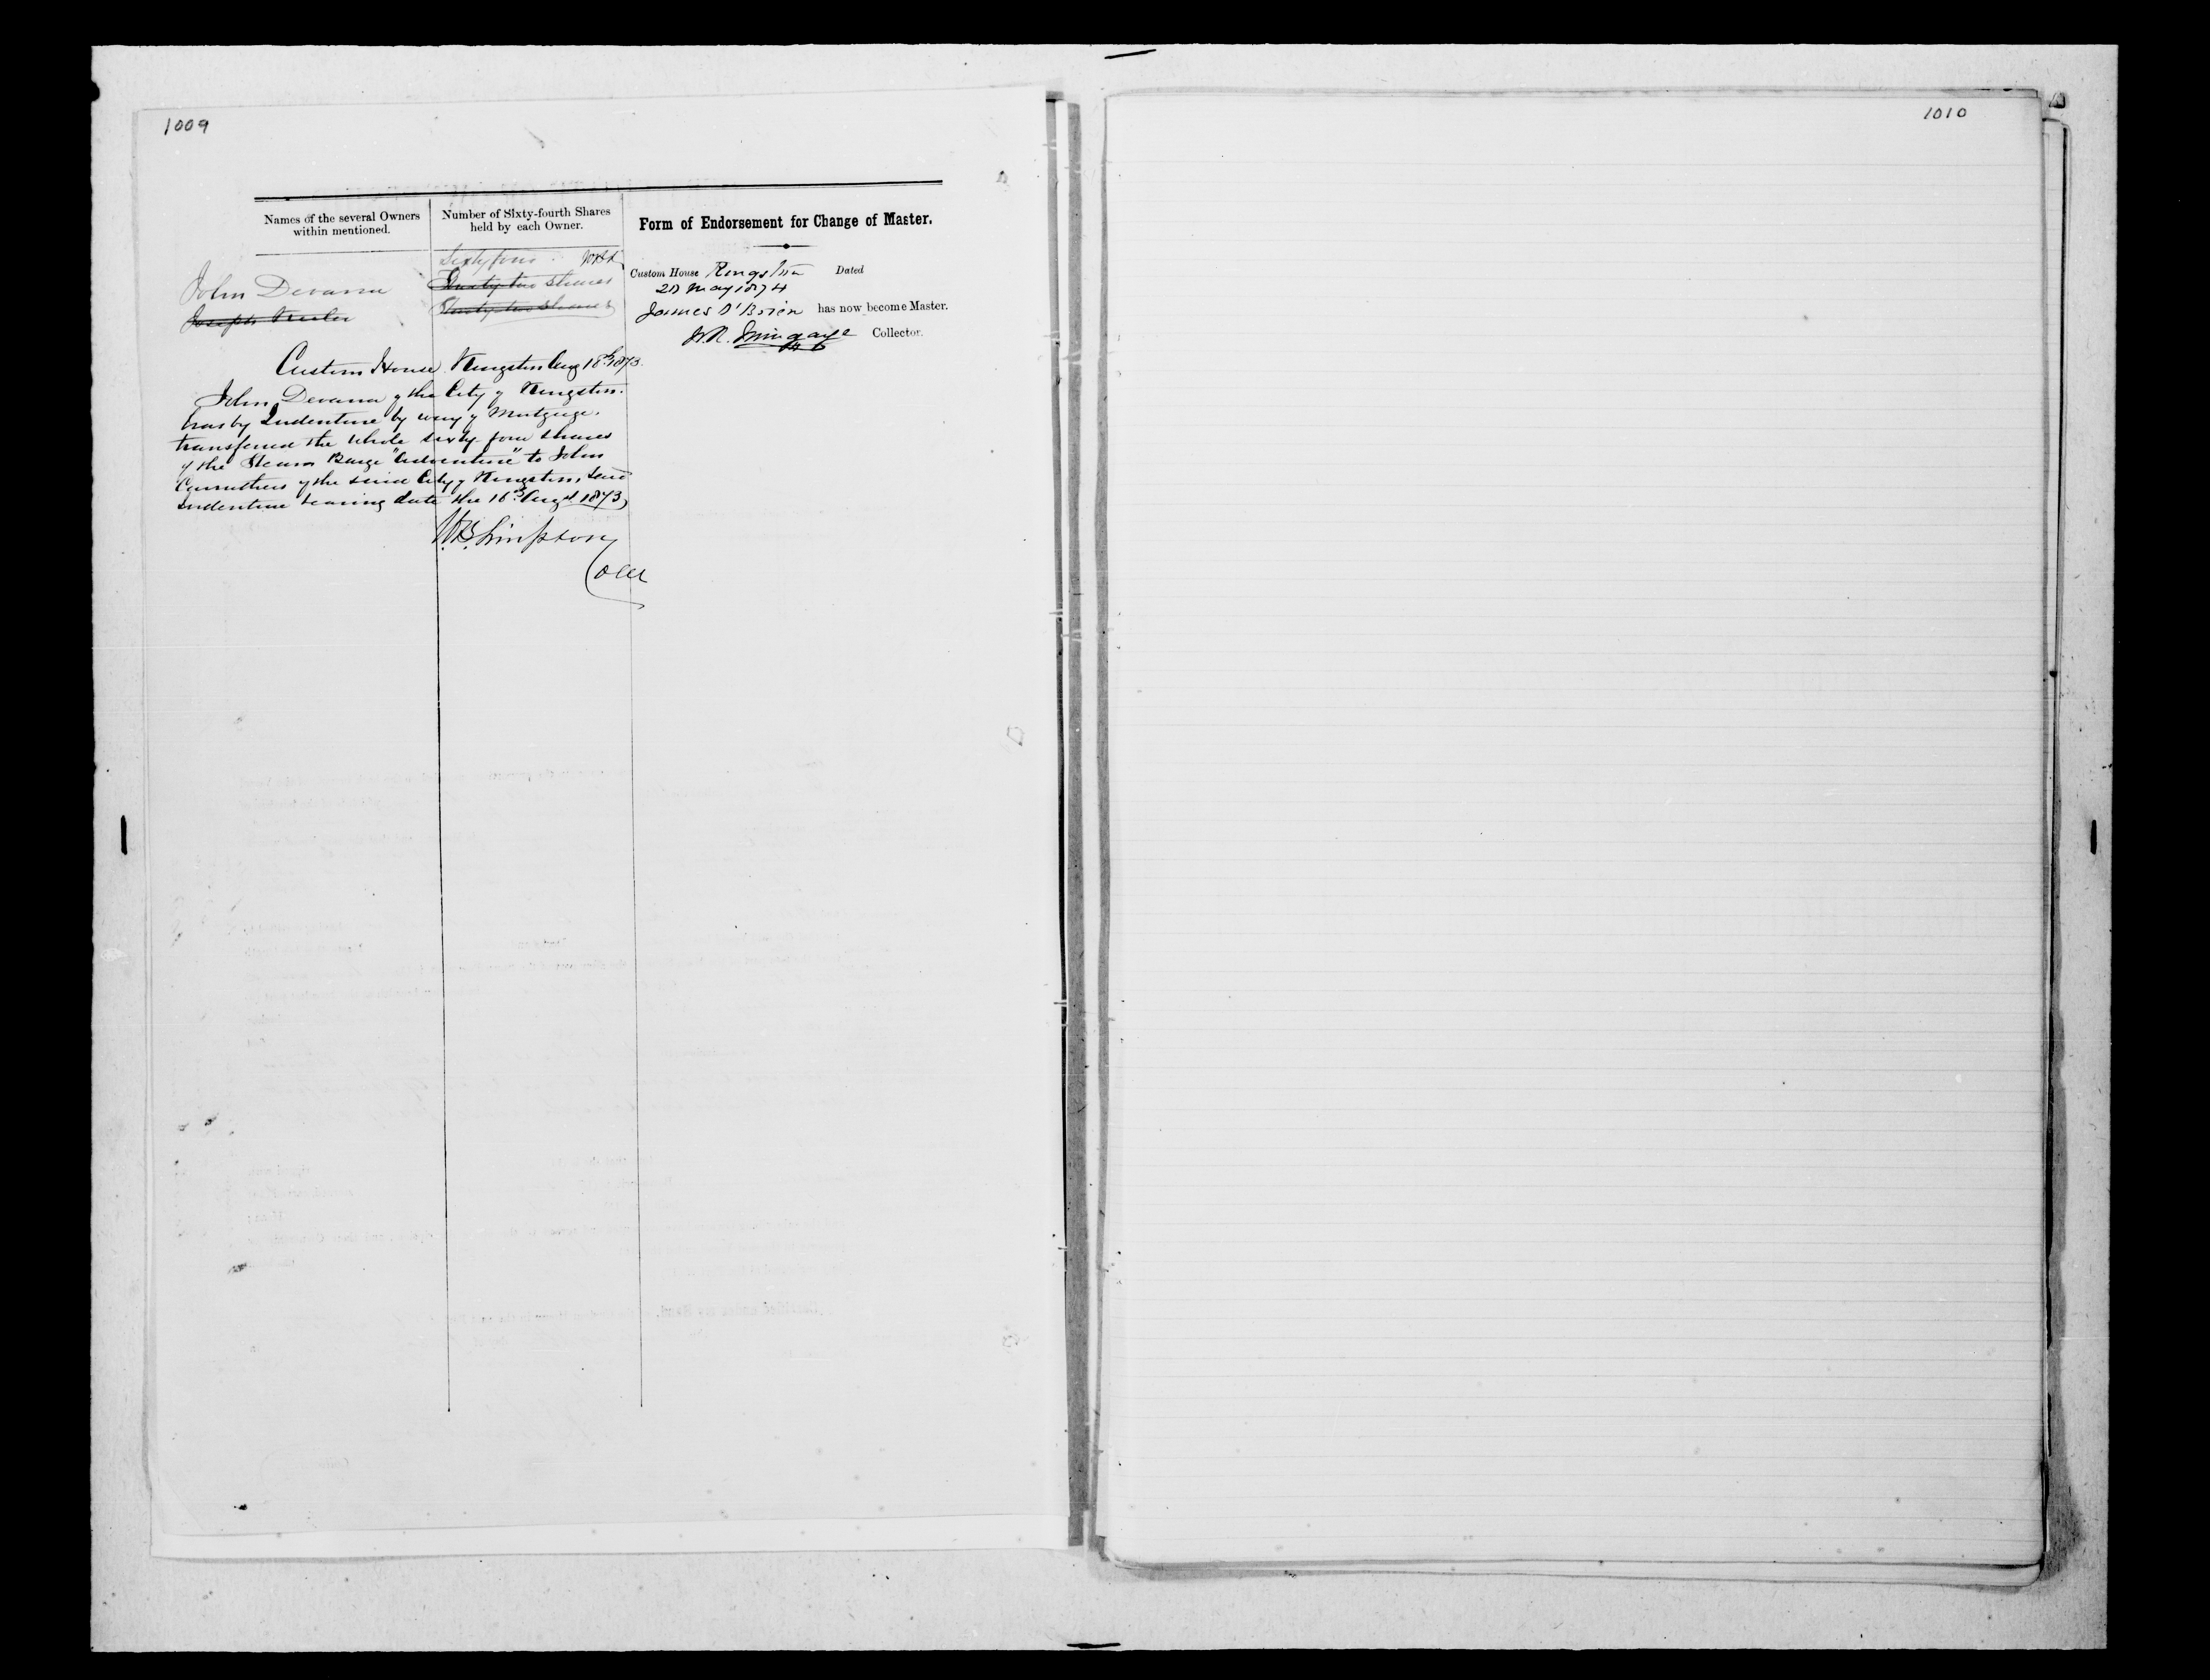 1009
1010
Names of the several Owners
within mentioned.
Number of Sixty-fourth Shares
held by each Owner.
Form of Endorsement for Change of Master.
Sixty four WBS
John Devanna
Thirty two shares
Joseph
Thirty two shares
Custom House Kingston Dated
20 May 1874
James O'Brien has now become Master.
W.R. Mingaye Collector.
Custom House Kingston Aug 18th 1873
John Devanna of the City of Kingston.
has by Indenture by way of Mortgage.
transferred the whole sixty-four shares
of the Steam Barge "Adventure" to John
Carruthers of the said City of Kingston, said
indenture bearing date the 16th Augst 1873,
WB Simpson
Coll